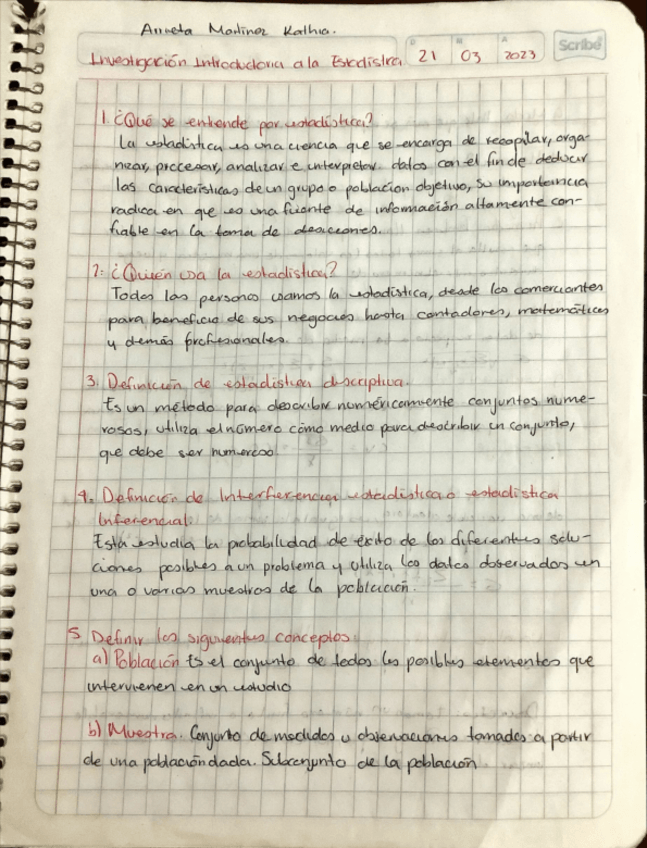 Arrieta Martinez Kathia.
Scribe
D M A
Investigación Introductoria a la Estadistica 21 03 2023
1. ¿Qué se entiende por estadistica?
La estadistica es una ciencia que se encarga de recopilar, orga-
nizar, procesar, analizar e interpretar datos con el fin de deducir
las caracteristicas de un grupo o poblacion objetivo, su importancia
radica en que es una fuente de información altamente con-
fiable en la toma de decisiones.
2. ¿Quién usa la estadistica?
Todas las personas usamos la estadistica, desde los comerciantes
para beneficio de sus negocios hasta contadores, matemáticos
y demás profesionales.
3. Definición de estadistica descriptiva.
Es un método para describir numéricamente conjuntos nume-
rosos, utiliza el número como medio para describir un conjunto,
que debe ser numeroso.
4. Definición de Interferencia estadistica o estadistica
Inferencial.
Esta estudia la probabilidad de éxito de las diferentes solu-
ciones posibles a un problema y utiliza los datos observados en
una o varias muestras de la población.
5 Definir los siguientes conceptos
a) Población Es el conjunto de todos los posibles elementos que
intervienen en un estudio
b) Muestra. Conjunto de medidas u observaciones tomadas a partir
de una población dada. Subconjunto de la población